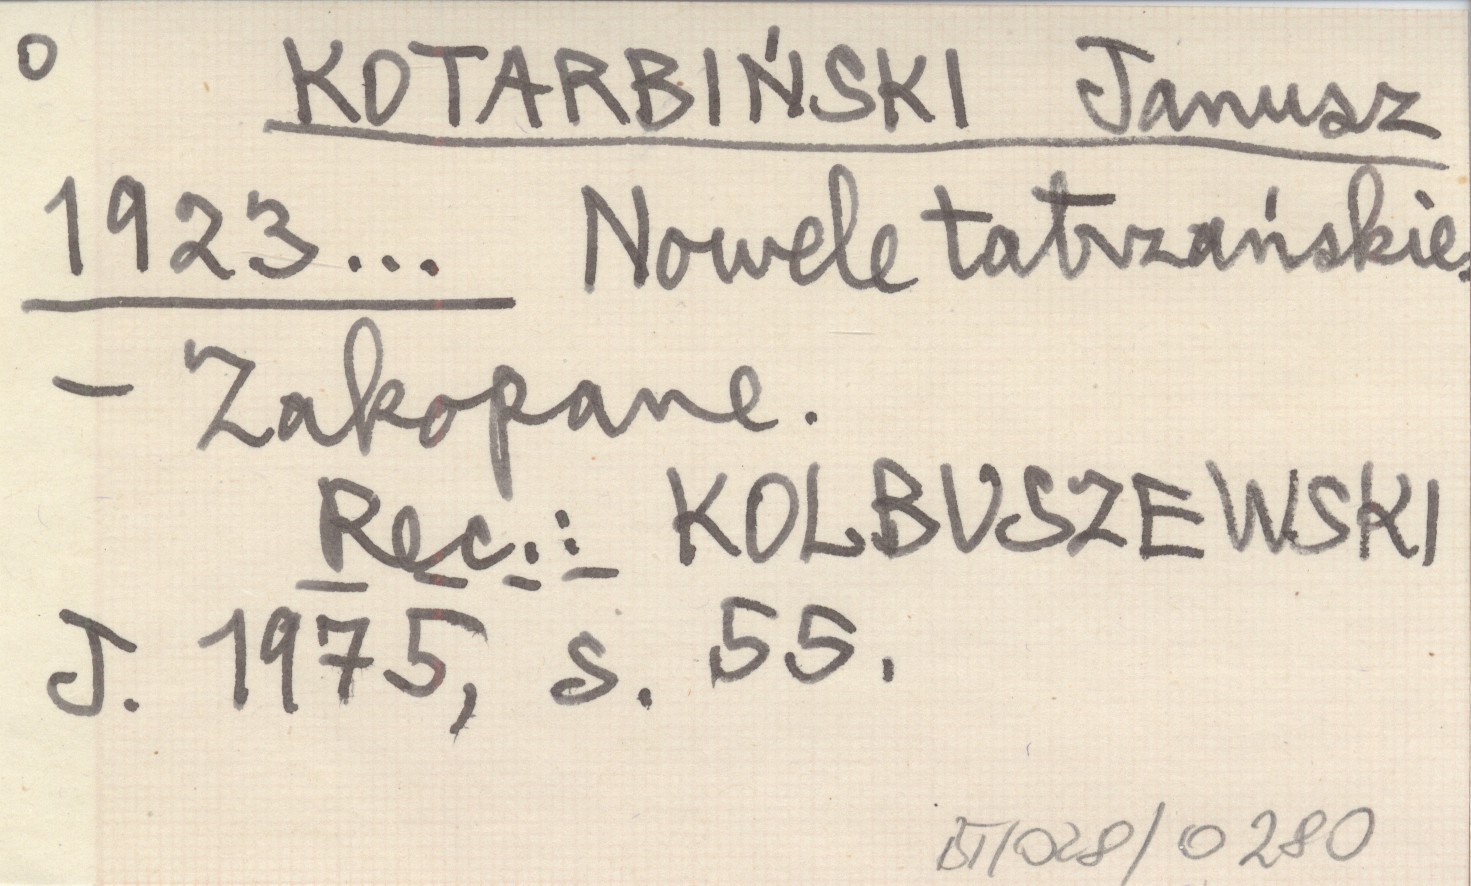 o KOTARBIŃSKI Janusz
1923... Nowele tatrzańskie.
- Zakopane.
Rec.: KOLBUSZEWSKI
J. 1975, s. 55.
BT/028/0280